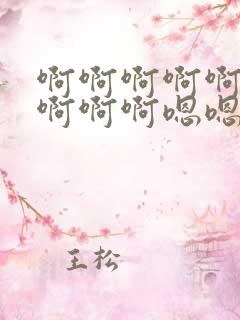 啊啊啊啊啊
啊啊啊嗯嗯
王松